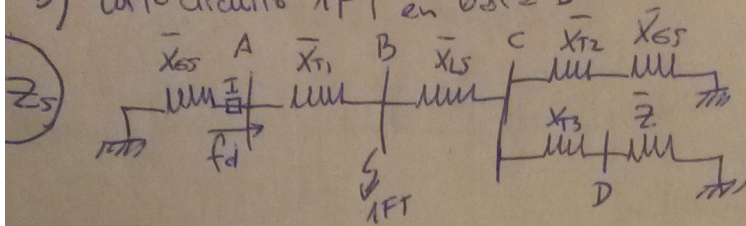 cortocircuito 1FT en barra B
Zs
X̄GS A X̄T1 B X̄LS C X̄T2 X̄GS
I
fd
XT3 Z̄
1FT
D